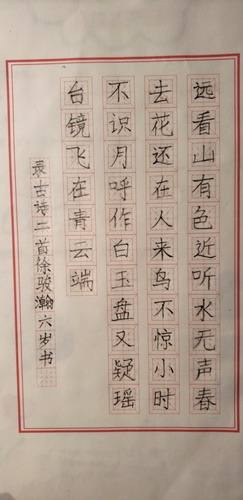 远看山有色近听水无声春
去花还在人来鸟不惊小时
不识月呼作白玉盘又疑瑶
台镜飞在青云端
录古诗二首徐骏瀚六岁书